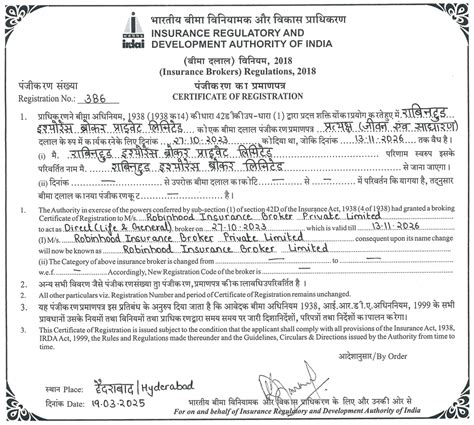 भारतीय बीमा विनियामक और विकास प्राधिकरण
INSURANCE REGULATORY AND
DEVELOPMENT AUTHORITY OF INDIA
irdai
(बीमा दलाल) विनियम, 2018
(Insurance Brokers) Regulations, 2018
पंजीकरण संख्या
पंजीकरण का प्रमाणपत्र
Registration No.: 386
CERTIFICATE OF REGISTRATION
1. प्राधिकरण ने बीमा अधिनियम, 1938 (1938 का 4) की धारा 42 की उप-धारा (1) द्वारा प्रदत्त शक्तियों का प्रयोग करते हुए मै. राबिनहुड
इंश्योरेंस ब्रोकर प्राइवेट लिमिटेड को एक बीमा दलाल पंजीकरण प्रमाणपत्र प्रत्यक्ष (जीवन एवं साधारण)
दलाल के रूप में कार्य करने के लिए दिनांक 27-10-2023 को दिया था, जोकि दिनांक 13-11-2026 तक वैध है।
(i) मै. राबिनहुड इंश्योरेंस ब्रोकर प्राइवेट लिमिटेड परिणाम स्वरुप इसके
परिवर्तित नाम मै. राबिनहुड इंश्योरेंस ब्रोकर लिमिटेड से जाना जाएगा।
(ii) दिनांक — से उपरोक्त बीमा दलाल का — से — में परिवर्तन किया गया है, तद्नुसार
बीमा दलाल का नया पंजीकरण कूट — है। दिनांक —
1. The Authority in exercise of the powers conferred by sub-section (1) of section 42D of the Insurance Act, 1938 (4 of 1938) had granted a broking
Certificate of Registration to M/s. Robinhood Insurance Broker Private Limited
to act as Direct (Life & General) broker on 27-10-2023 which is valid till 13-11-2026
(I) M/s. Robinhood Insurance Broker Private Limited consequent upon its name change
will now be known as Robinhood Insurance Broker Limited
(ii) The Category of above insurance broker is changed from — to —
w.e.f — Accordingly, New Registration Code of the broker is —
2. अन्य सभी विवरण जैसे पंजीकरण संख्या तथा पंजीकरण, प्रमाणपत्र की कालावधि अपरिवर्तित है।
2. All other particulars viz. Registration Number and period of Certificate of Registration remains unchanged.
3. यह पंजीकरण प्रमाणपत्र इस प्रतिबंध के अनुसार दिया जाता है कि आवेदक बीमा अधिनियम, 1938, आई.आर.डी.ए. अधिनियम, 1999 के सभी
प्रावधानों उसके नियमों तथा विनियमों तथा प्राधिकरण द्वारा समय समय पर जारी दिशानिर्देशों, परिपत्रों तथा निर्देशों का पालन करेगा।
3. This Certificate of Registration is issued subject to the condition that the applicant shall comply with all provisions of the Insurance Act, 1938,
IRDA Act, 1999, the Rules and Regulations made thereunder and the Guidelines, Circulars & Directions issued by the Authority from time to
time.
आदेशानुसार/By Order
स्थान/Place: हैदराबाद/Hyderabad
दिनांक/Date: 19-03-2025
भारतीय बीमा विनियामक और विकास प्राधिकरण के लिए और उनकी ओर से
For and on behalf of Insurance Regulatory and Development Authority of India